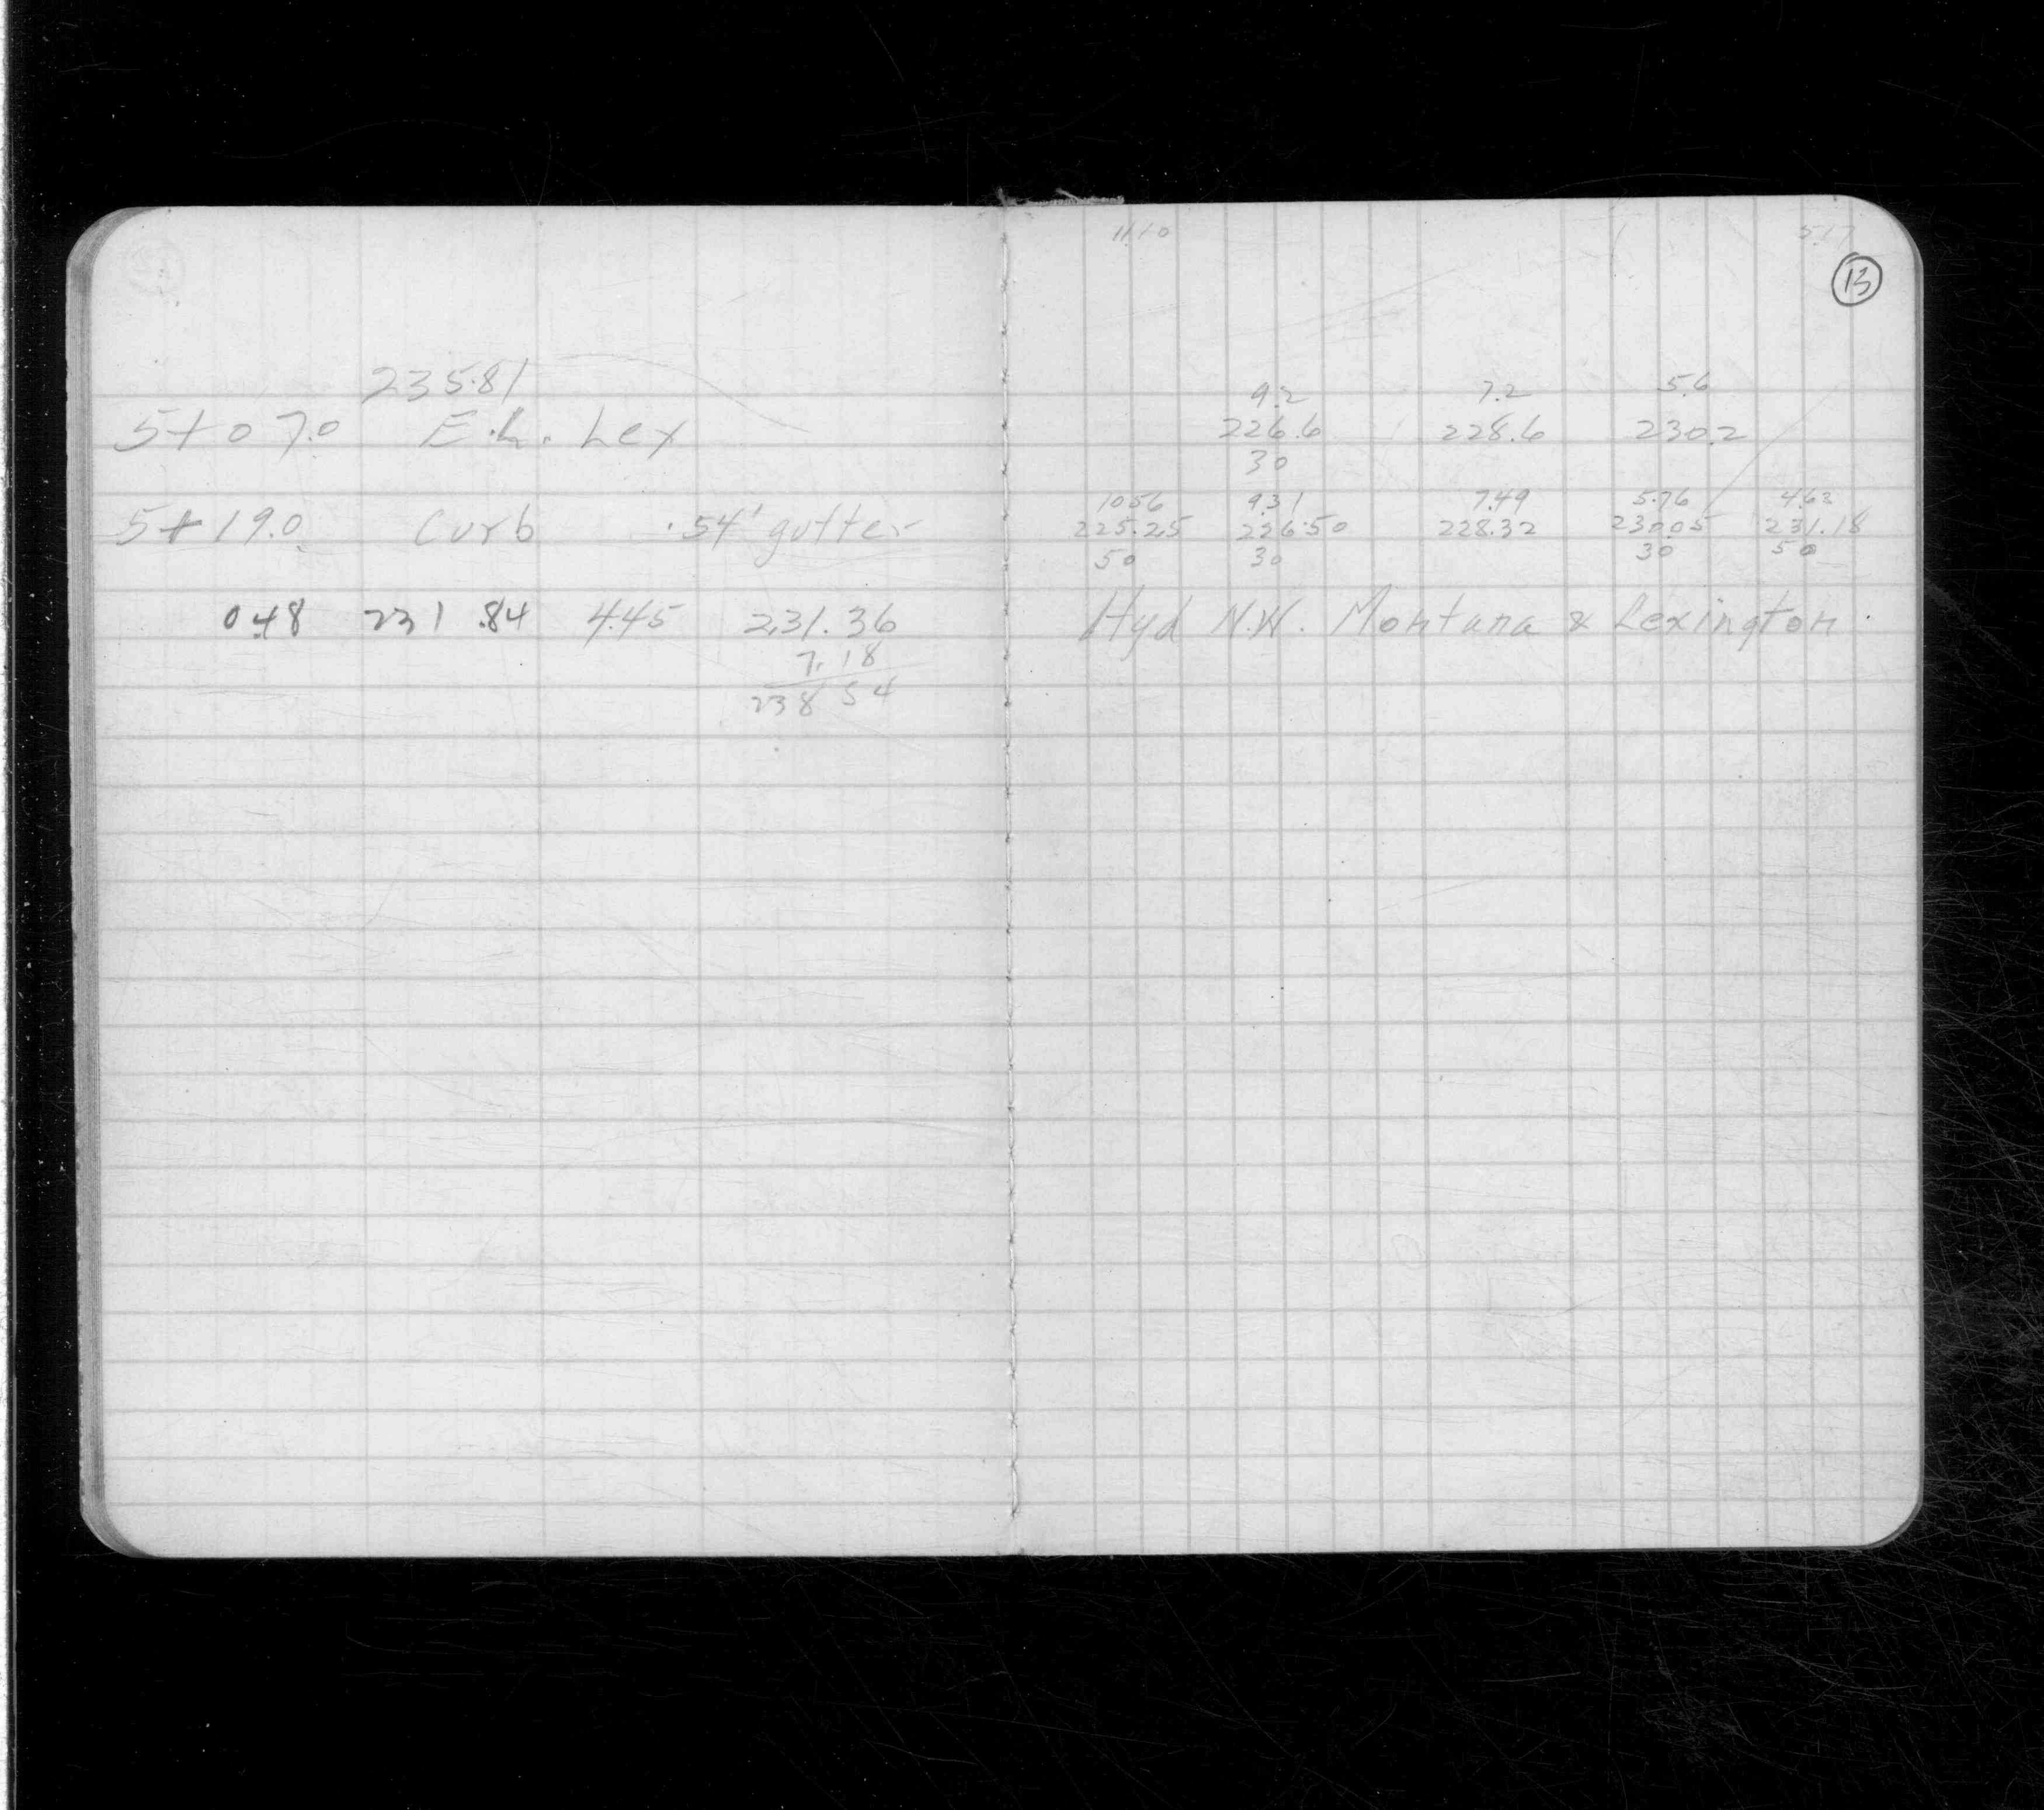 235.81
5+07.0 E.L. Lex
5+19.0 Curb .54' gutter
0.48 231.84 4.45 231.36
7.18
238 54
11.10 5.17
13
9.2 7.2 5.6
226.6 228.6 230.2
30
10.56 9.31 7.49 5.76 4.63
225.25 226.50 228.32 230.05 231.18
50 30 30 50
Hyd N.W. Montana & Lexington.